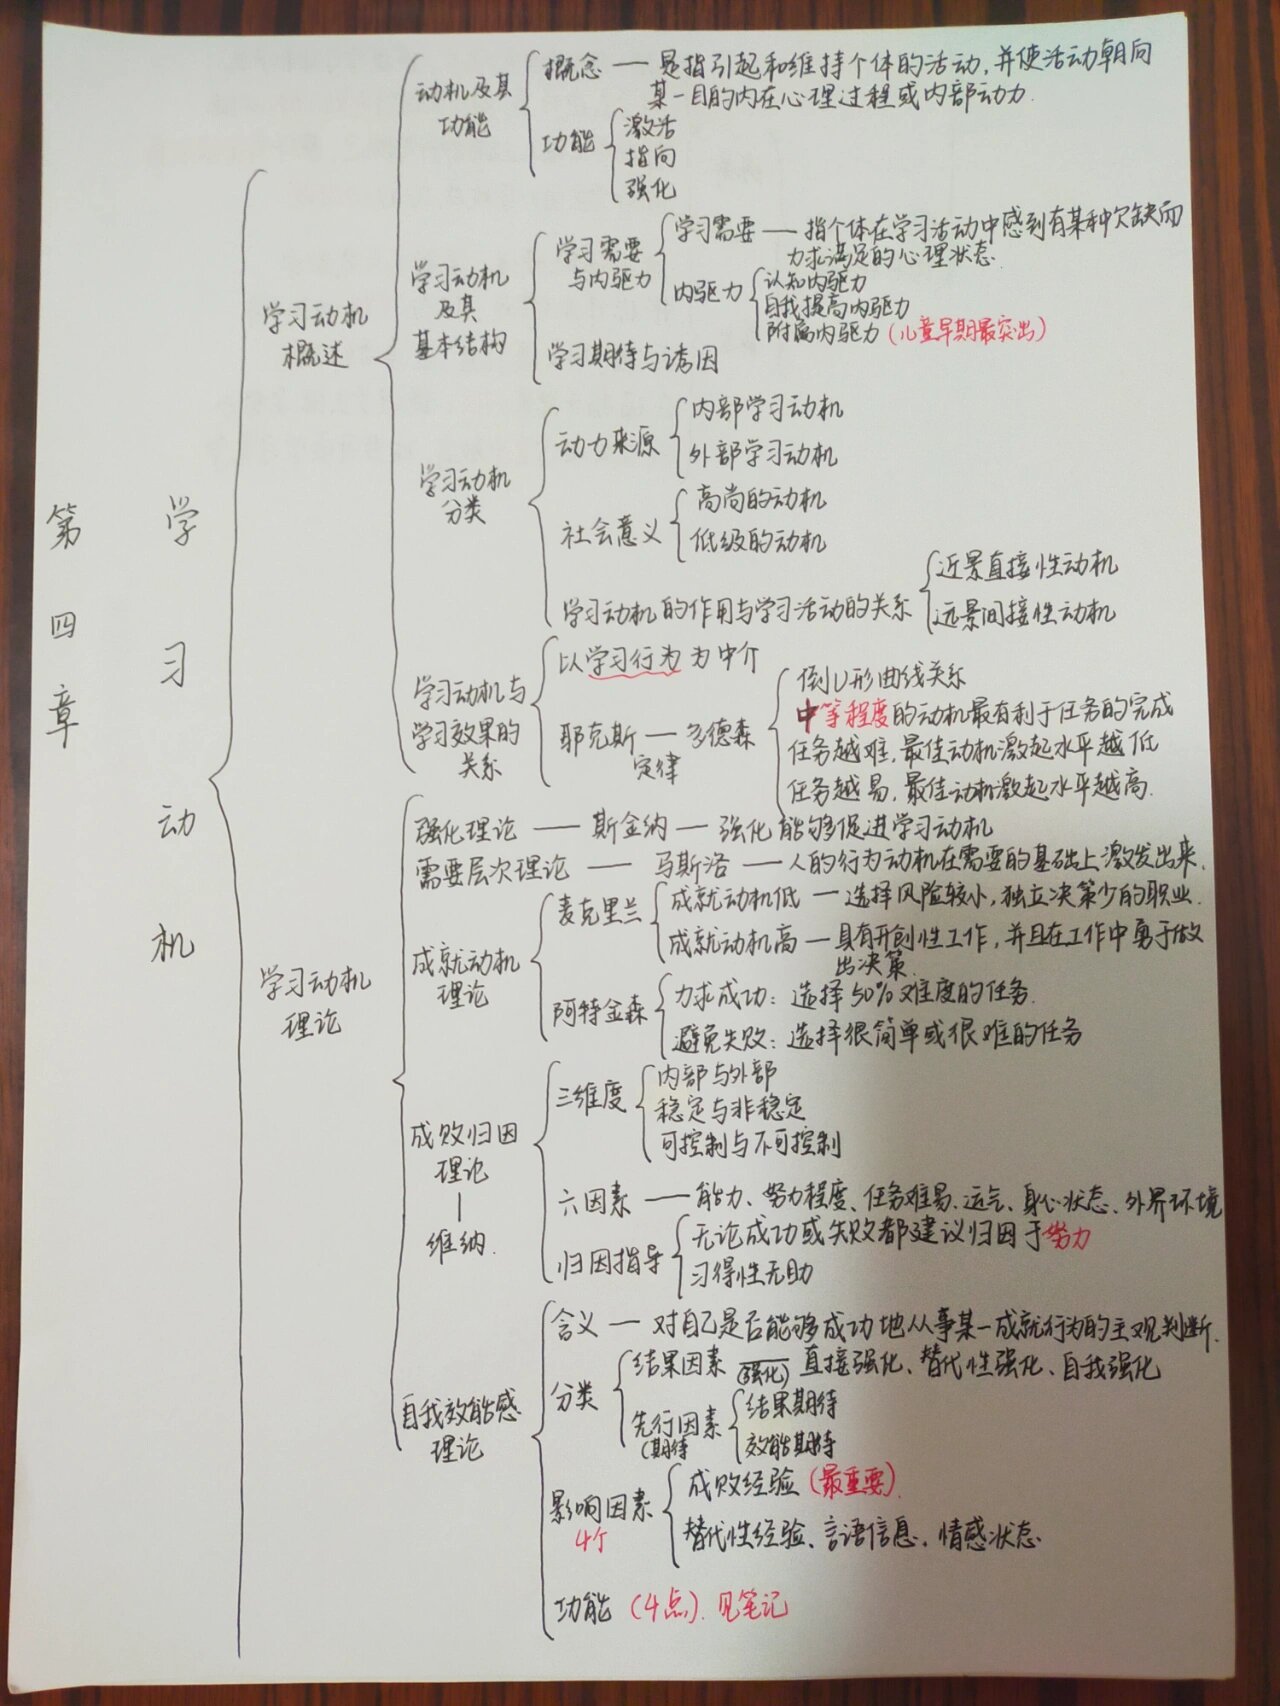 第四章
学习动机
学习动机
概述
动机及其
功能
概念 — 是指引起和维持个体的活动,并使活动朝向
某一目的内在心理过程或内部动力.
功能
激活
指向
强化
学习动机
及其
基本结构
学习需要
与内驱力
学习需要 — 指个体在学习活动中感到有某种欠缺而
力求满足的心理状态.
内驱力
认知内驱力
自我提高内驱力
附属内驱力 (儿童早期最突出)
学习期待与诱因
学习动机
分类
动力来源
内部学习动机
外部学习动机
社会意义
高尚的动机
低级的动机
学习动机的作用与学习活动的关系
近景直接性动机
远景间接性动机
学习动机与
学习效果的
关系
以学习行为为中介
耶克斯 — 多德森
定律
倒U形曲线关系
中等程度的动机最有利于任务的完成
任务越难,最佳动机激起水平越低
任务越易,最佳动机激起水平越高.
学习动机
理论
强化理论 — 斯金纳 — 强化能够促进学习动机
需要层次理论 — 马斯洛 — 人的行为动机在需要的基础上激发出来.
成就动机
理论
麦克里兰
成就动机低 — 选择风险较小,独立决策少的职业.
成就动机高 — 具有开创性工作,并且在工作中勇于做
出决策.
阿特金森
力求成功: 选择50%难度的任务.
避免失败: 选择很简单或很难的任务
成败归因
理论
|
维纳.
三维度
内部与外部
稳定与非稳定
可控制与不可控制
六因素 — 能力、努力程度、任务难易、运气、身心状态、外界环境
归因指导
无论成功或失败都建议归因于努力
习得性无助
自我效能感
理论
含义 — 对自己是否能够成功地从事某一成就行为的主观判断.
分类
结果因素 (强化) 直接强化、替代性强化、自我强化
先行因素
(期待
结果期待
效能期待
影响因素
4个
成败经验 (最重要).
替代性经验、言语信息、情感状态.
功能 (4点). 见笔记